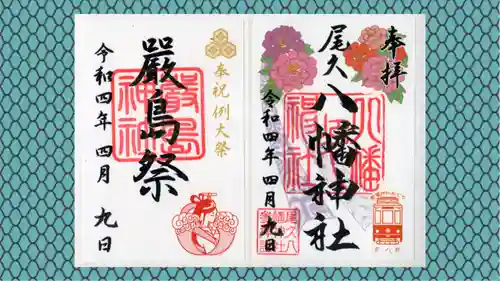 奉拝
尾久八幡神社
令和四年四月九日
八幡神社
尾久八幡神社
奉祝例大祭
嚴島祭
嚴島神社
令和四年四月九日